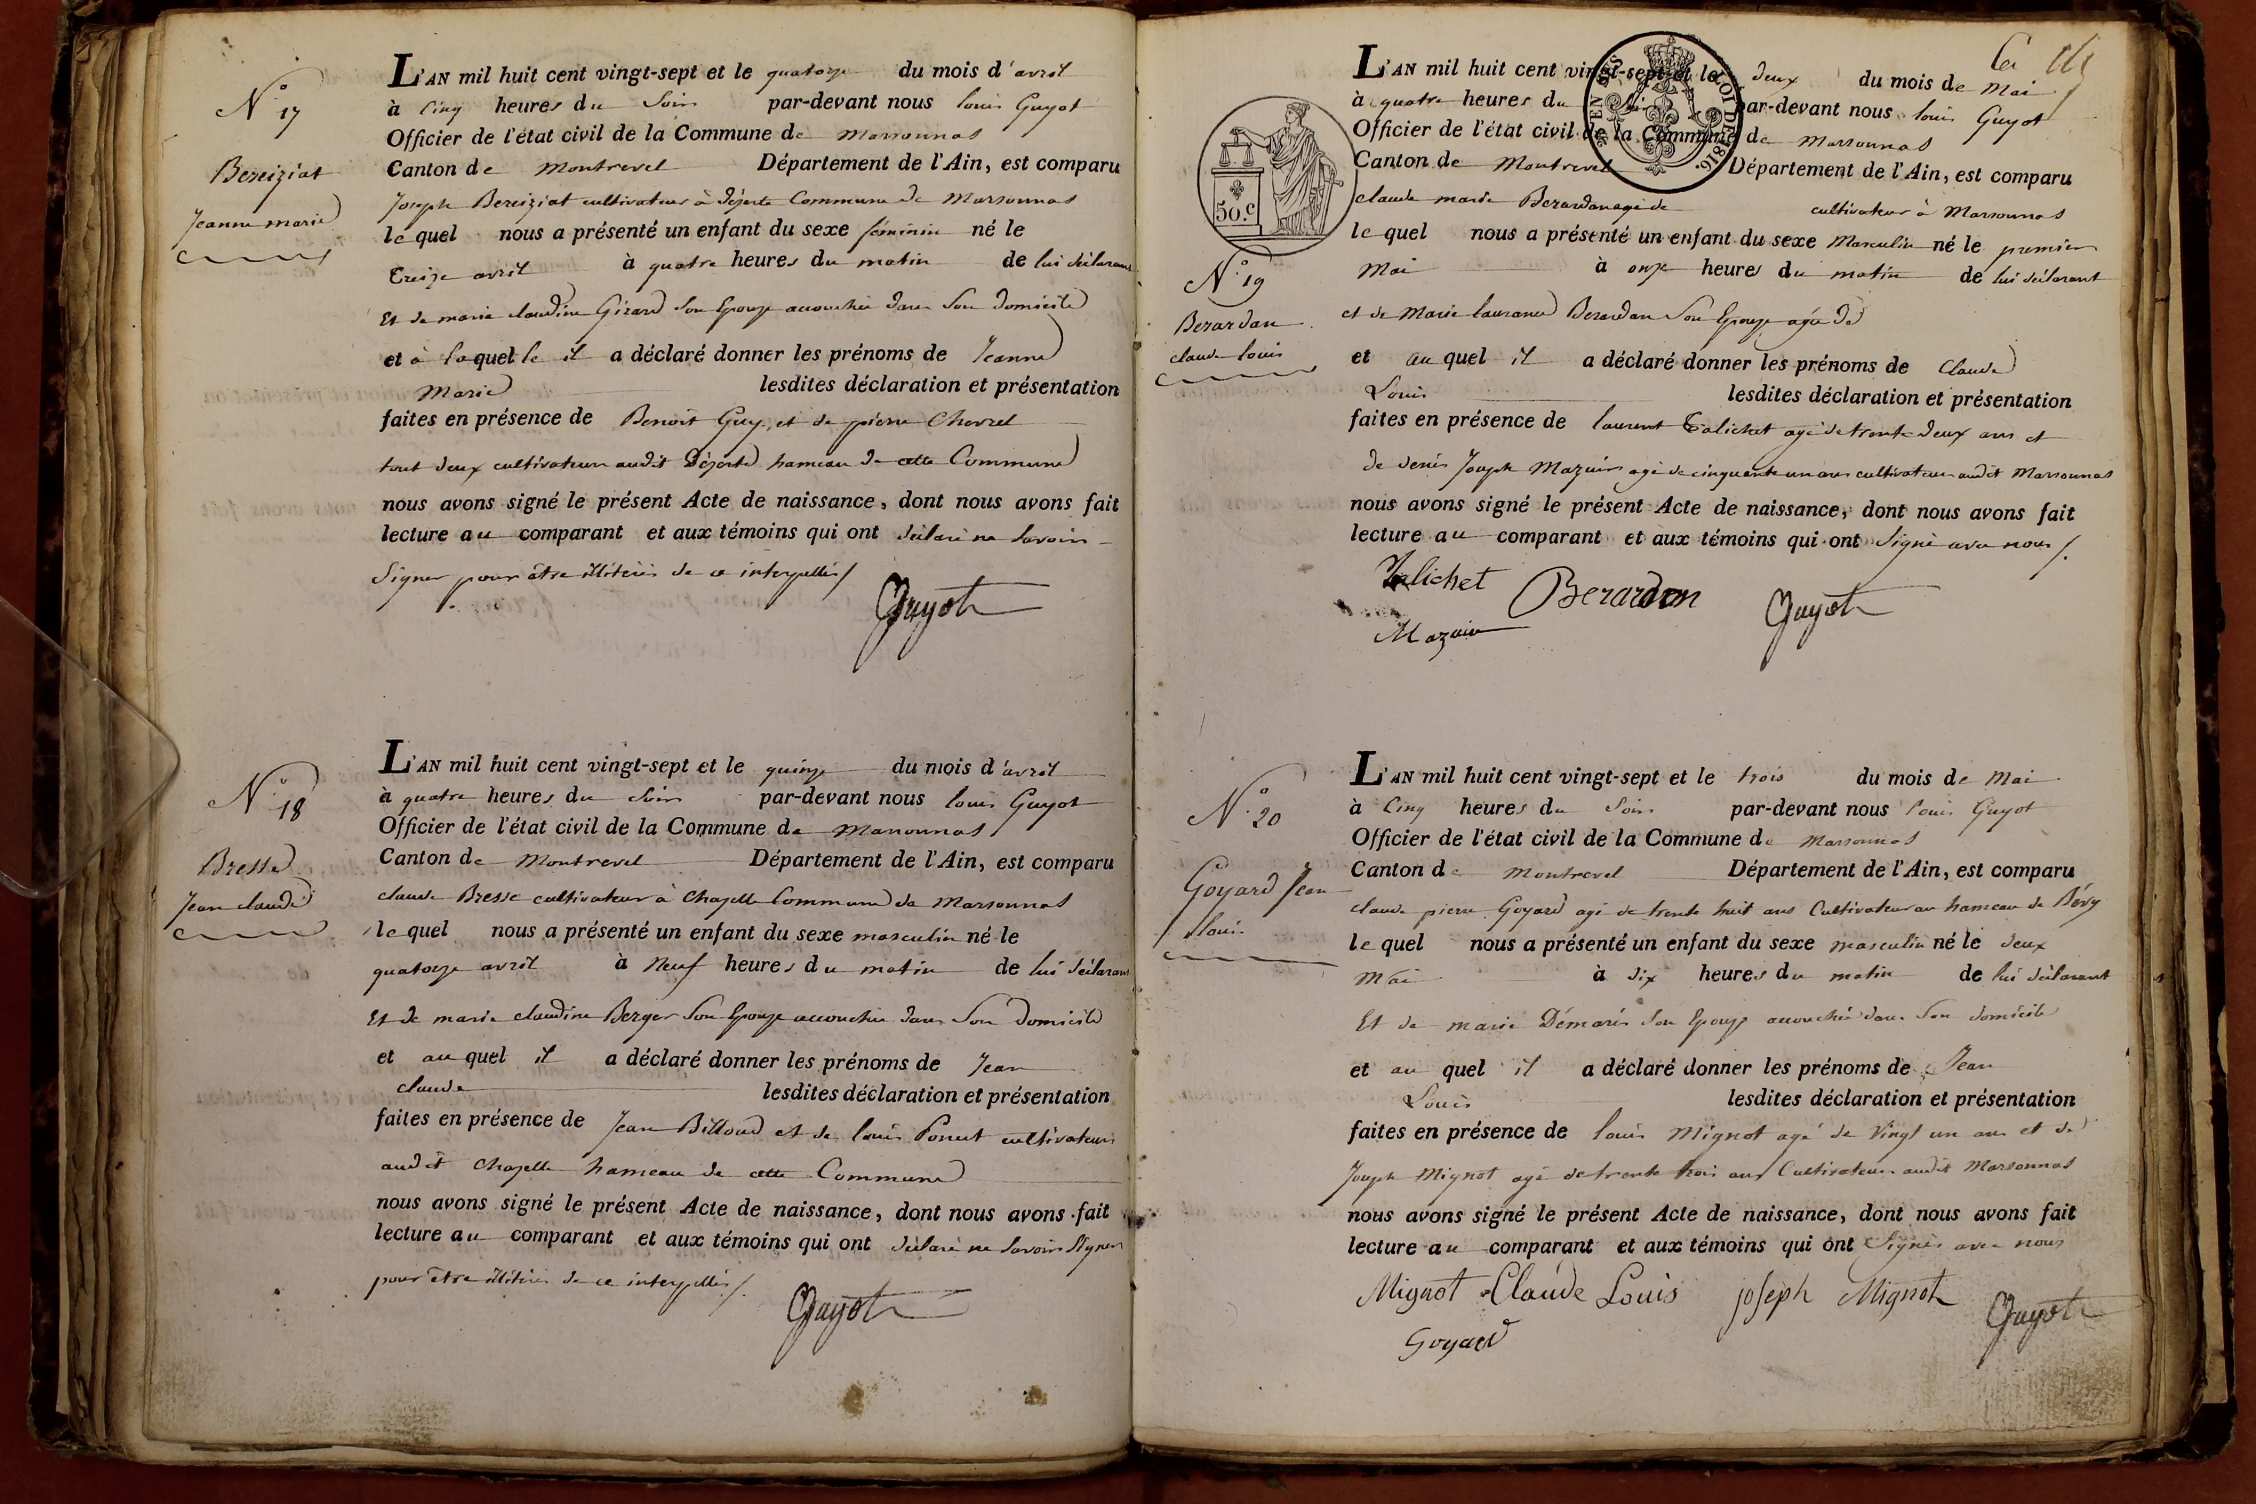 N.° 17
Bereiziat
Jeanne marie
L'AN mil huit cent vingt-sept et le quatorze du mois d'avril
à Cinq heures du Soir par-devant nous louis Guyot
Officier de l'état civil de la Commune de marsonnas
Canton de montrevel Département de l'Ain, est comparu
Joseph Bereiziat cultivateur à Dézerte Commune de marsonnas
lequel nous a présenté un enfant du sexe féminin né le
treize avril à quatre heures du matin de lui déclarant
Et de marie claudine Girard Son Epouze accouchée dans Son domicile
et à laquelle il a déclaré donner les prénoms de Jeanne
Marie lesdites déclaration et présentation
faites en présence de Benoit Guy, et de pierre Chevrel
tout deux cultivateurs audit Dézerte hameau de cette Commune
nous avons signé le présent Acte de naissance, dont nous avons fait
lecture au comparant et aux témoins qui ont déclaré ne Savoir
Signer pour être illitérés de ce interpellés/.
Guyot
N.° 18
Bresse
Jean claude
L'AN mil huit cent vingt-sept et le quinze du mois d'avril
à quatre heures du Soir par-devant nous louis Guyot
Officier de l'état civil de la Commune de marsonnas
Canton de montrevel Département de l'Ain, est comparu
claude Bresse cultivateur à Chapelle Commune de marsonnas
lequel nous a présenté un enfant du sexe masculin né le
quatorze avril à Neuf heures du matin de lui déclarant
Et de marie claudine Berger Son Epouze accouchée dans Son domicile
et auquel il a déclaré donner les prénoms de Jean
claude lesdites déclaration et présentation
faites en présence de Jean Billoud et de louis Ponut cultivateurs
audit Chapelle hameau de cette Commune
nous avons signé le présent Acte de naissance, dont nous avons fait
lecture au comparant et aux témoins qui ont déclaré ne Savoir Signer
pour être illitérés de ce interpellés/.
Guyot
50.c
EN SUS
LOI DE 1816.
N.° 19
Berardan
claude louis
L'AN mil huit cent vingt-sept et le deux du mois de Mai
à quatre heures du Soir par-devant nous louis Guyot
Officier de l'état civil de la Commune de marsonnas
Canton de Montrevel Département de l'Ain, est comparu
claude marie Berardan agé de cultivateur à Marsonnas
lequel nous a présenté un enfant du sexe Masculin né le premier
Mai à onze heures du matin de lui déclarant
et de Marie laurance Berardan Son Epouze agée de
et auquel il a déclaré donner les prénoms de Claude
Louis lesdites déclaration et présentation
faites en présence de laurent Talichet agé de trente deux ans et
de denis Joseph Mazuir agé de cinquante un ans cultivateurs audit Marsonnas
nous avons signé le présent Acte de naissance, dont nous avons fait
lecture au comparant et aux témoins qui ont Signé avec nous/.
Talichet Berardan Guyot
Mazuir
N.° 20
Goyard Jean
louis
L'AN mil huit cent vingt-sept et le trois du mois de Mai
à Cinq heures du Soir par-devant nous louis Guyot
Officier de l'état civil de la Commune de marsonnas
Canton de montrevel Département de l'Ain, est comparu
claude pierre Goyard agé de trente huit ans Cultivateur au hameau de Bévy
lequel nous a présenté un enfant du sexe masculin né le deux
Mai à six heures du matin de lui déclarant
Et de marie Démaris Son Epouze accouchée dans Son domicile
et auquel il a déclaré donner les prénoms de Jean
Louis lesdites déclaration et présentation
faites en présence de louis Mignot agé de Vingt un ans et de
Joseph Mignot agé de trente trois ans Cultivateurs audit Marsonnas
nous avons signé le présent Acte de naissance, dont nous avons fait
lecture au comparant et aux témoins qui ont Signés avec nous
Mignot Claude Louis joseph Mignot Guyot
Goyard